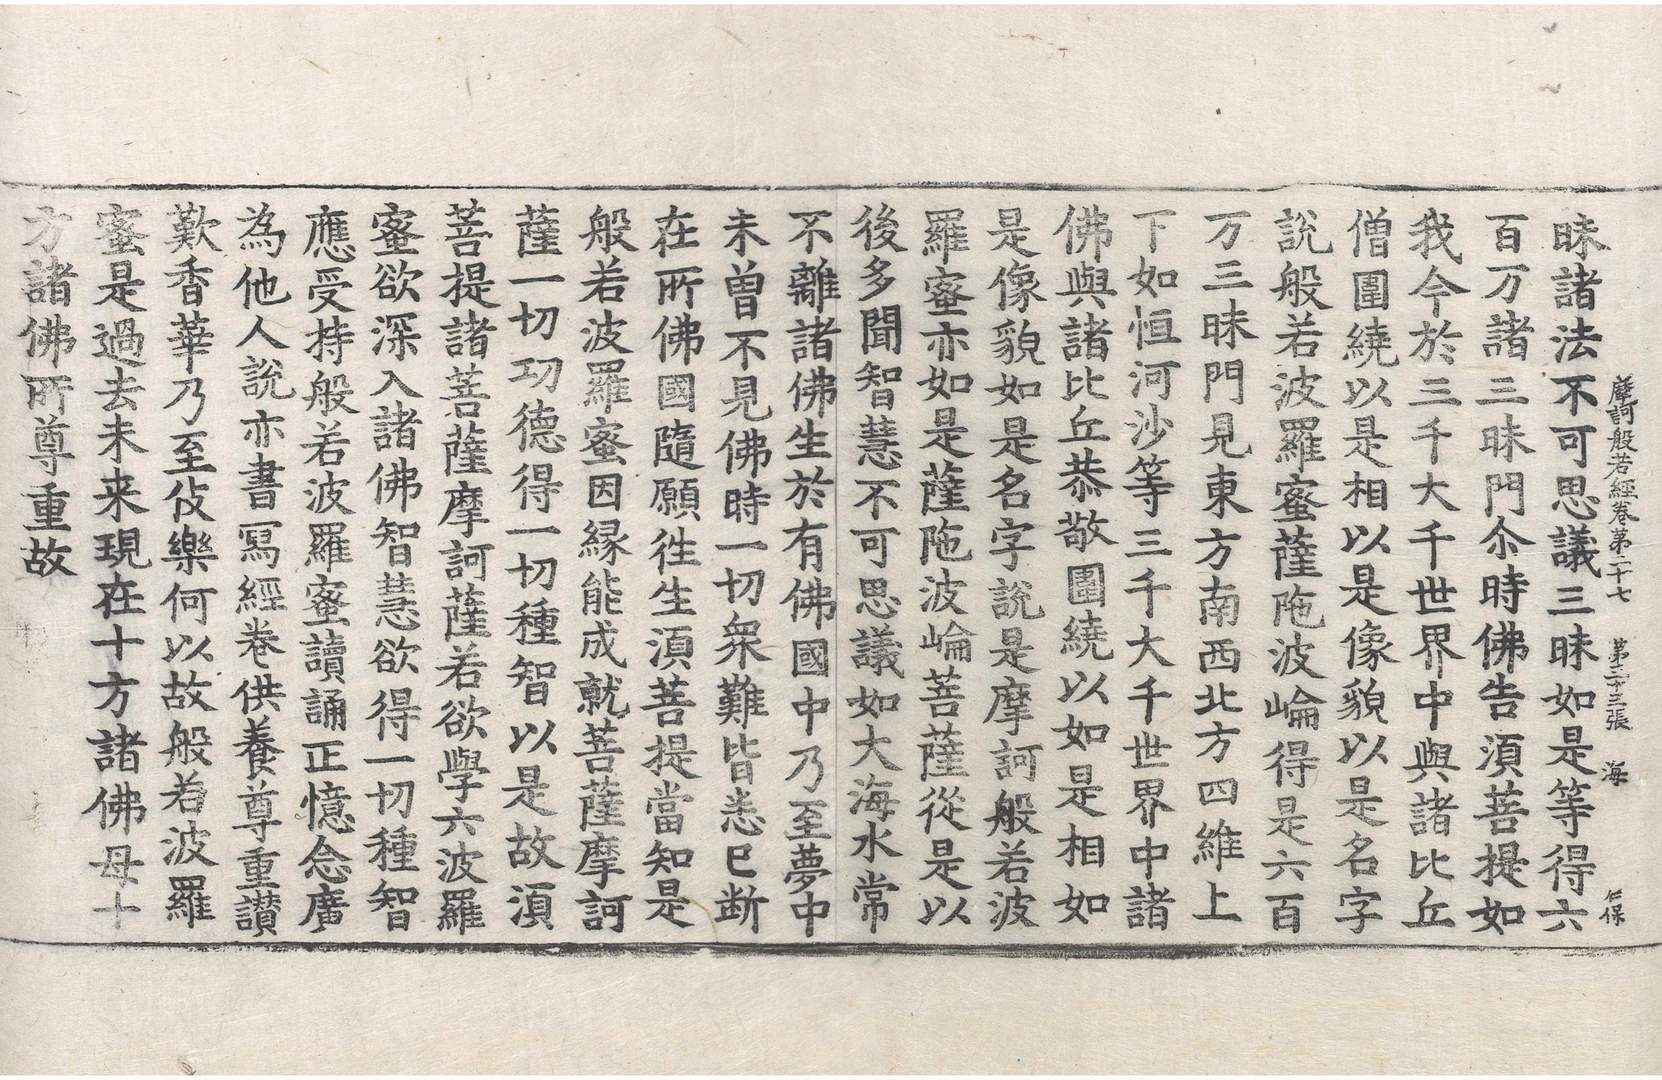 摩訶般若經卷第二十七 第二十三張 海 仁保
昧諸法不可思議三昧如是等得六
百万諸三昧門尒時佛告湏菩提如
我今於三千大千世界中與諸比丘
僧圍繞以是相以是像貌以是名字
說般若波羅蜜薩陁波崘得是六百
万三昧門見東方南西北方四維上
下如恒河沙等三千大千世界中諸
佛與諸比丘恭敬圍繞以如是相如
是像貌如是名字說是摩訶般若波
羅蜜亦如是薩陁波崘菩薩從是以
後多聞智慧不可思議如大海水常
不離諸佛生於有佛國中乃至夢中
未曾不見佛時一切衆難皆悉已断
在所佛國隨願徃生湏菩提當知是
般若波羅蜜因緣能成就菩薩摩訶
薩一切功德得一切種智以是故湏
菩提諸菩薩摩訶薩若欲學六波羅
蜜欲深入諸佛智慧欲得一切種智
應受持般若波羅蜜讀誦正憶念廣
為他人說亦書冩經卷供養尊重讃
歎香華乃至伎樂何以故般若波羅
蜜是過去未来現在十方諸佛母十
方諸佛所尊重故